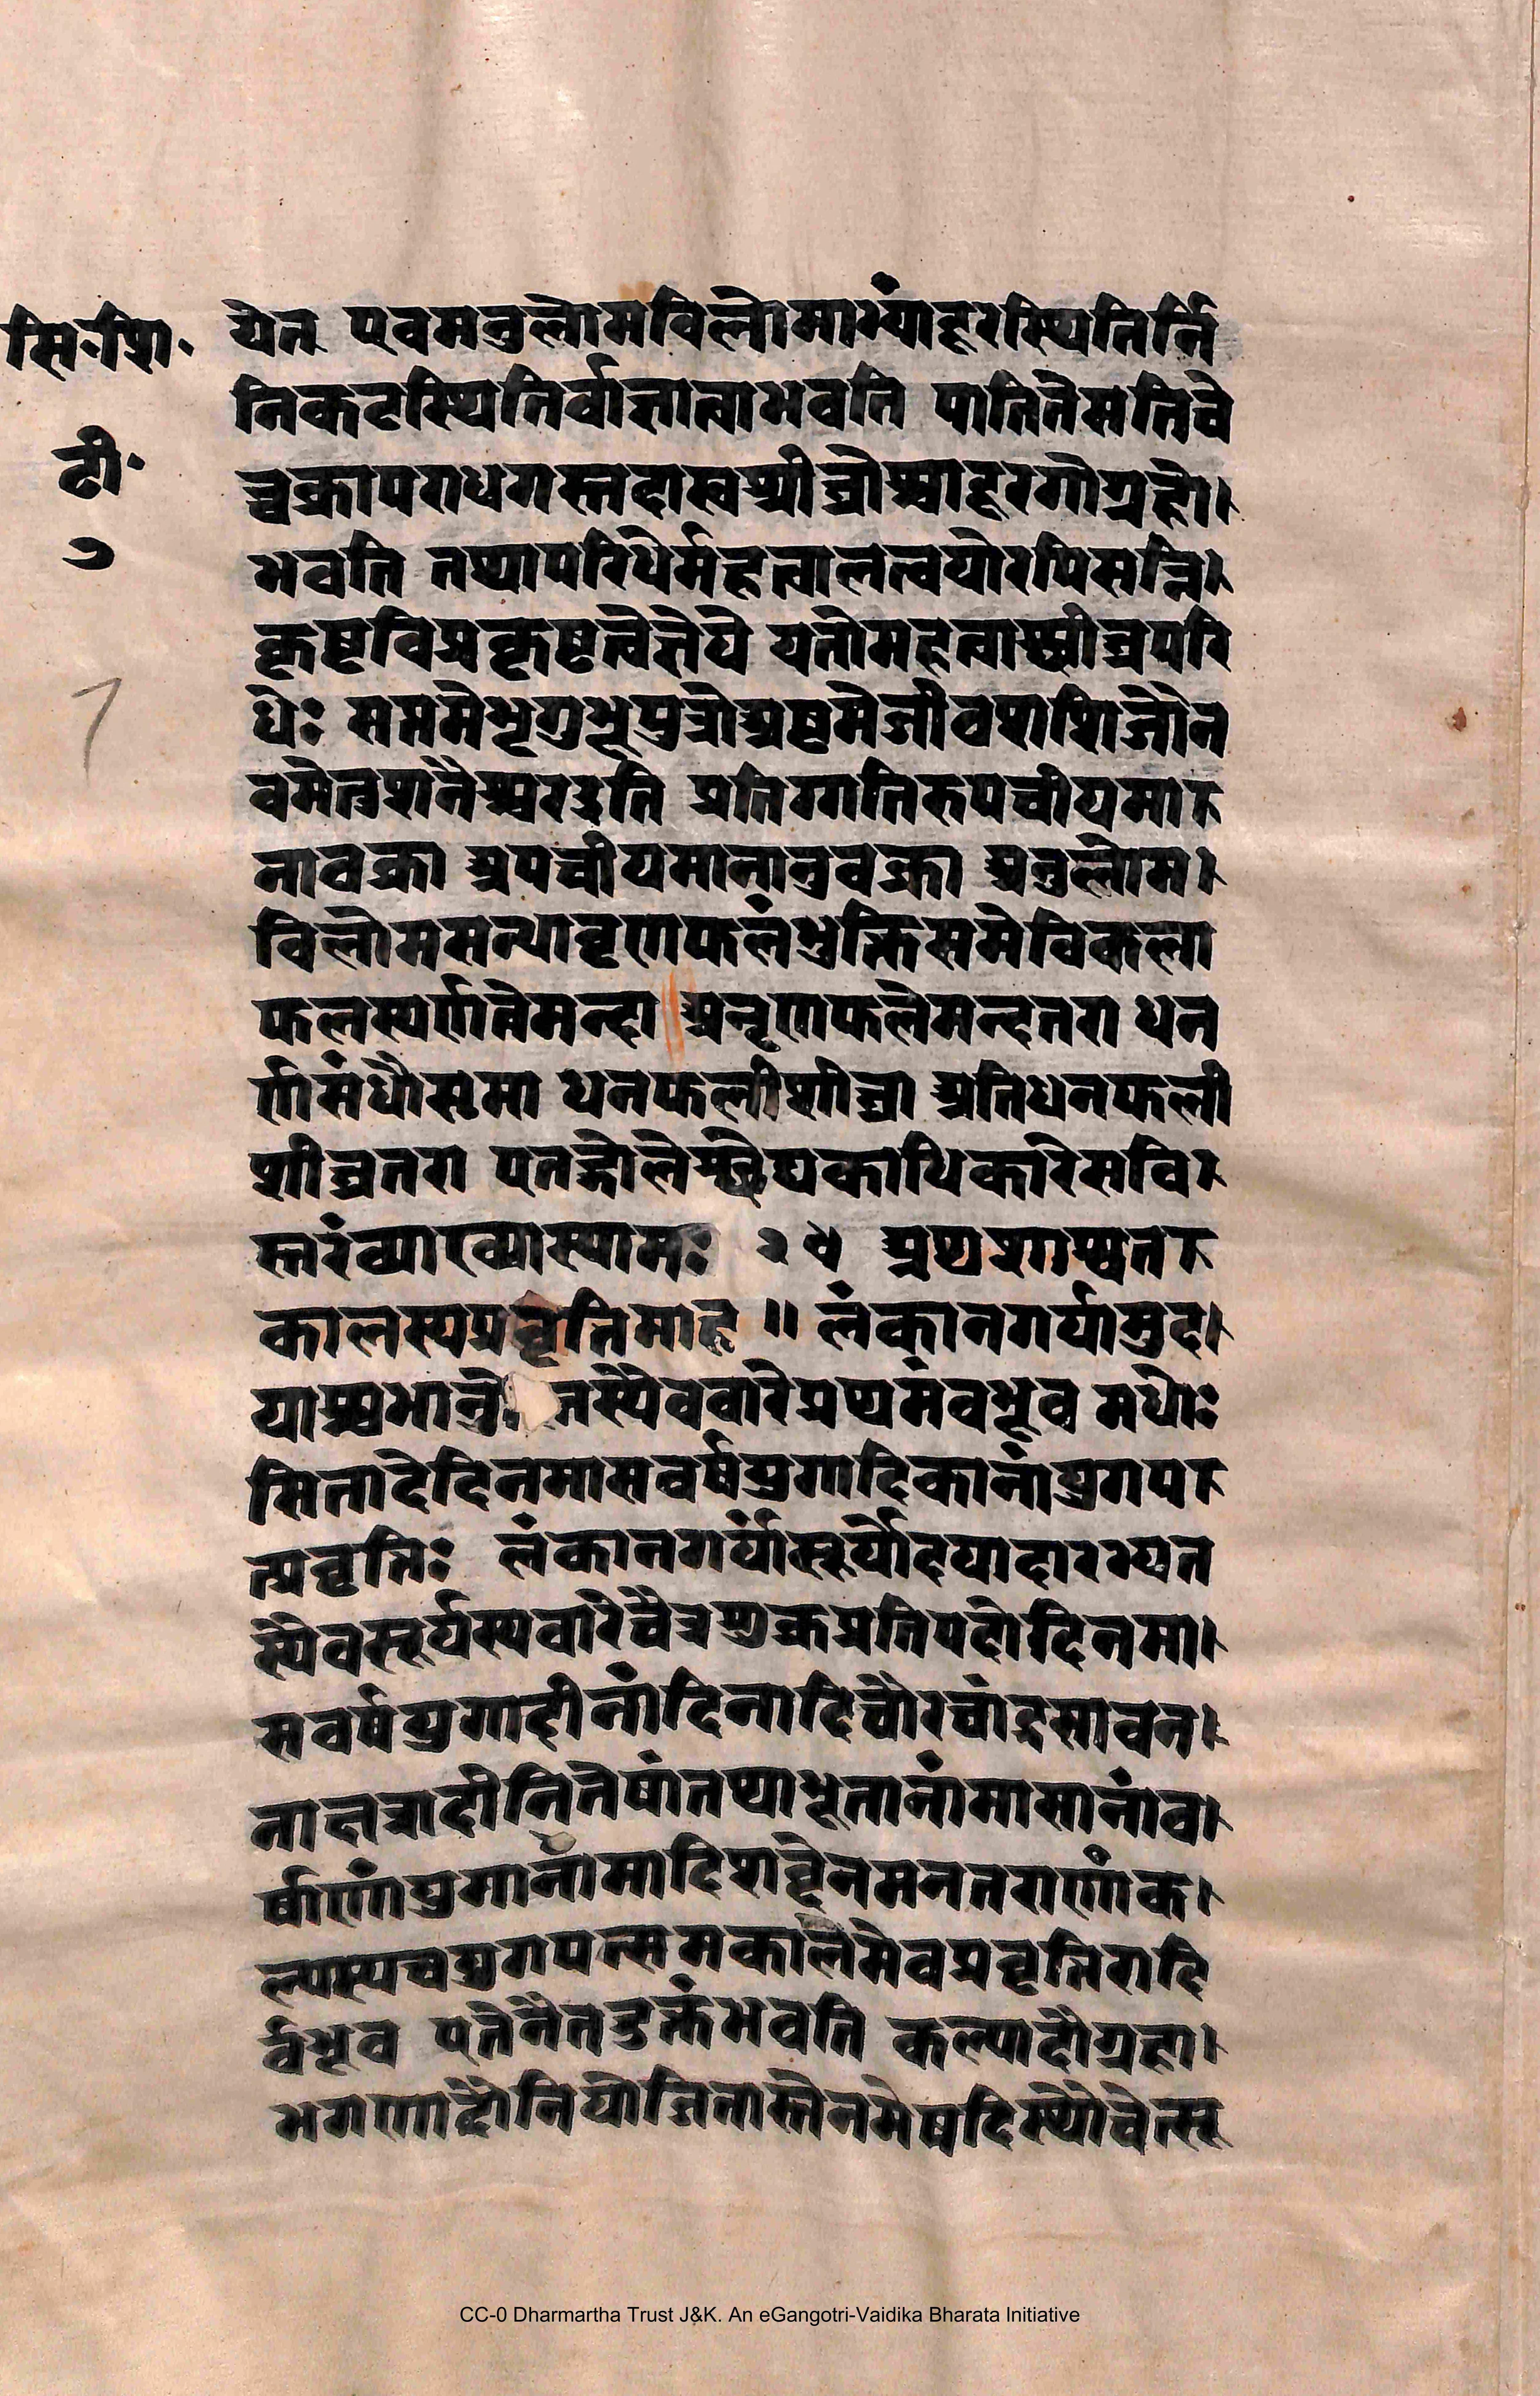 सि॰शि॰
टी॰
७
7
येन एवमनुलोमविलोमाभ्यांदूरस्थितिर्नि
निकटस्थितिर्वाज्ञात्वाभवति पातितेसतिचे
च्चक्रापराधगस्तदास्वशीघ्रोच्चाद्दूरगोग्रहो।
भवति तथापरिधेर्महत्वाल्पत्वयोरपिसन्नि।
कृष्टविप्रकृष्टत्वेज्ञेये यतोमहत्वाच्छीघ्रपरि
धेः सप्तमेभृगुभूपुत्रोअष्टमेजीवशशिजौन
वमेतुशनैश्चरइति प्रतिगतिरुपचीयमा
नावक्रा अपचीयमानानुवक्रा अनुलोम।
विलोमसन्धावृणफलंभुक्तिसमेविकला
फलस्यर्णत्वेमन्दा अनृणफलेमन्दतरा धन
र्णसंधौसमा धनफलीशीघ्रा अतिधनफली
शीघ्रतरा एतद्गोलेच्छेद्यकाधिकारेसवि
स्तरंव्याख्यास्यामः २४ अथशाश्वत
कालस्यप्रवृत्तिमाह ॥ लंकानगर्यामुद।
याच्चभानो जस्यैववारेप्रथमंवभूव मधोः
सितादेर्दिनमासवर्षयुगादिकानांयुगप
त्प्रवृत्तिः लंकानगर्यांसूर्योदयादारभ्यत
स्यैवसूर्यस्यवारेचैत्रशुक्लप्रतिपदोदिनमा।
सवर्षयुगादीनांदिनादिसौरचांद्रसावन।
नाक्षत्रादीनितेषांतथाभूतानांमासानांव।
र्षाणांयुगानामादिशब्देनमन्वतराणांक।
ल्पस्यचयुगपत्समकालमेवप्रवृत्तिरादि
र्वभूव एतेनैतदुक्तंभवति कल्पादौग्रहा।
भगणादौनियोजितास्तेनमेषादिस्थौचेत्सू
CC-0 Dharmartha Trust J&K. An eGangotri-Vaidika Bharata Initiative